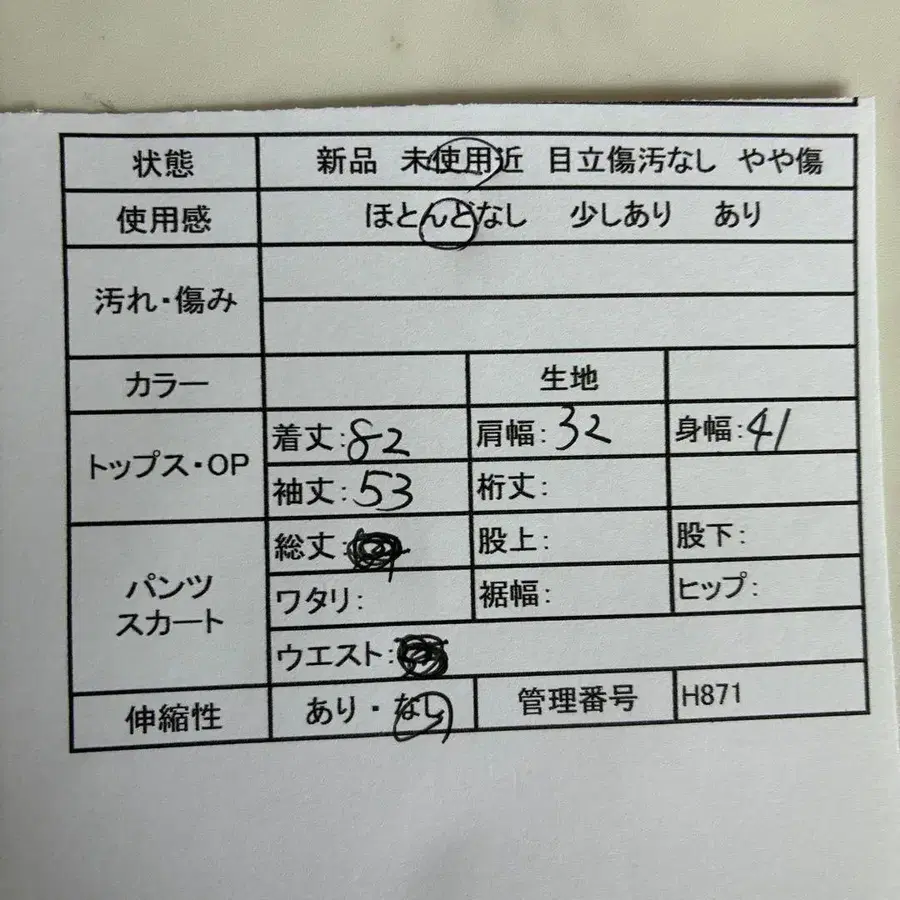 状態 新品 未使用近 目立傷汚なし やや傷
使用感 ほとんどなし 少しあり あり
汚れ・傷み
カラー 生地
トップス・OP
着丈:82 肩幅:32 身幅:41
袖丈:53 裄丈:
パンツ
スカート
総丈: 股上: 股下:
ワタリ: 裾幅: ヒップ:
ウエスト:
伸縮性 あり・なし 管理番号 H871